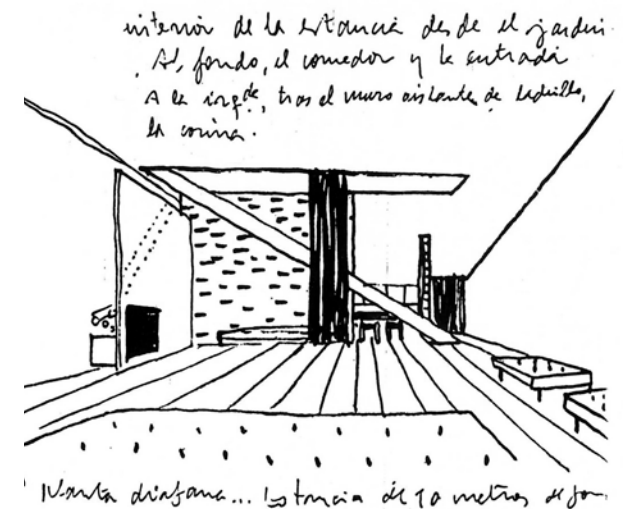 interior de la estancia desde el jardin.
Al fondo, el comedor y la entrada
A la izqda, tras el muro aislante de ladrillo,
la cocina.
Planta diafana... Estancia de 10 metros de